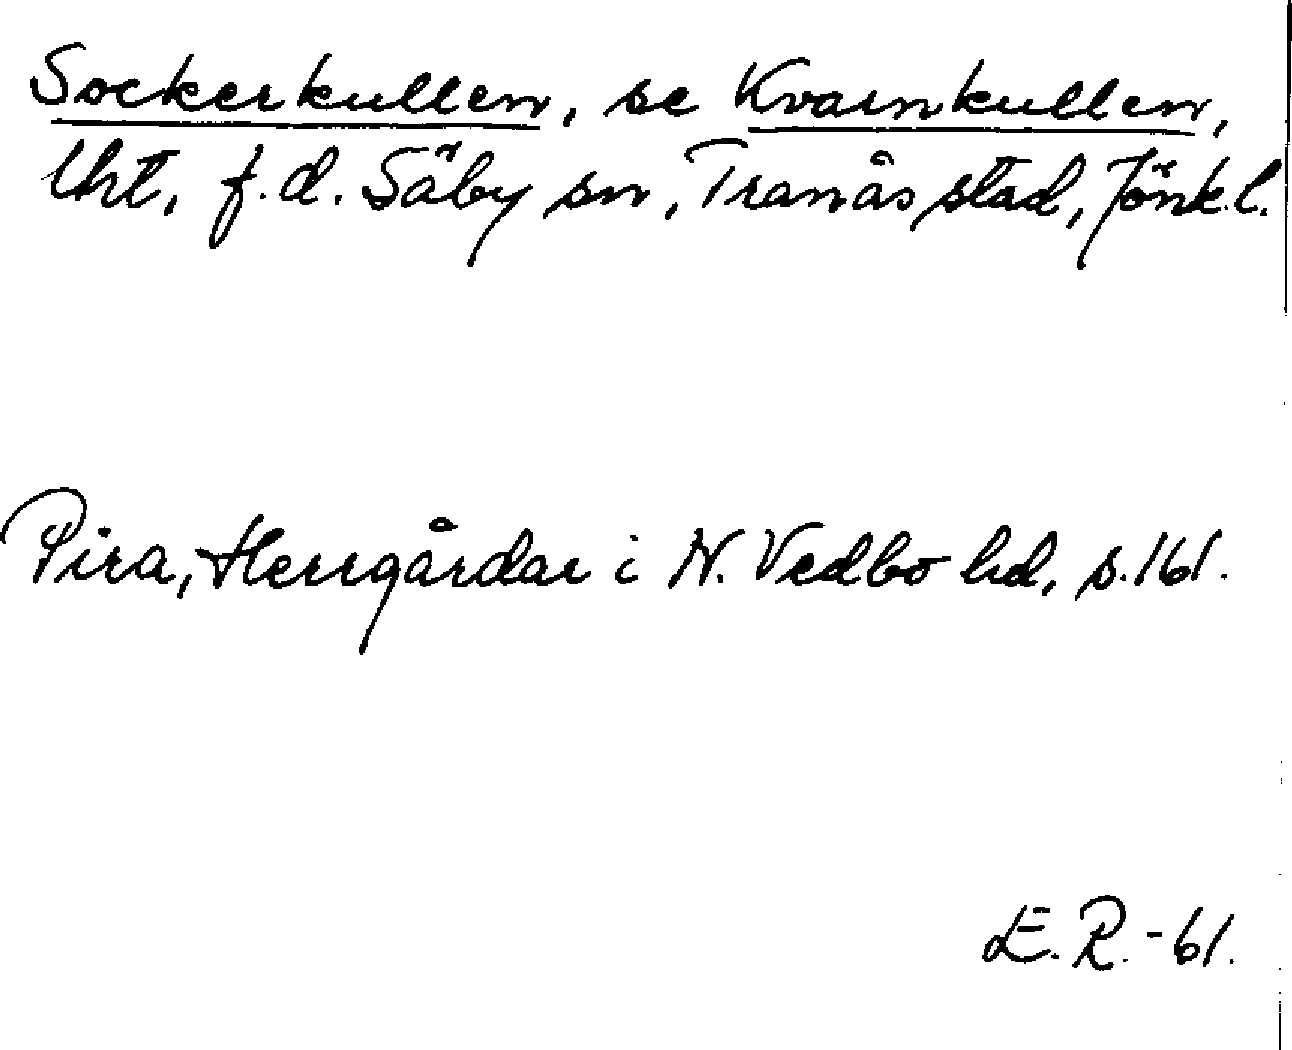 Sockerkullen, se Kvarnkullen,
lht, f.d. Säby sn, Tranås stad, Jönk.l.
Pira, Herrgårdar i N. Vedbo hd, s. 161.
E.R. -61.